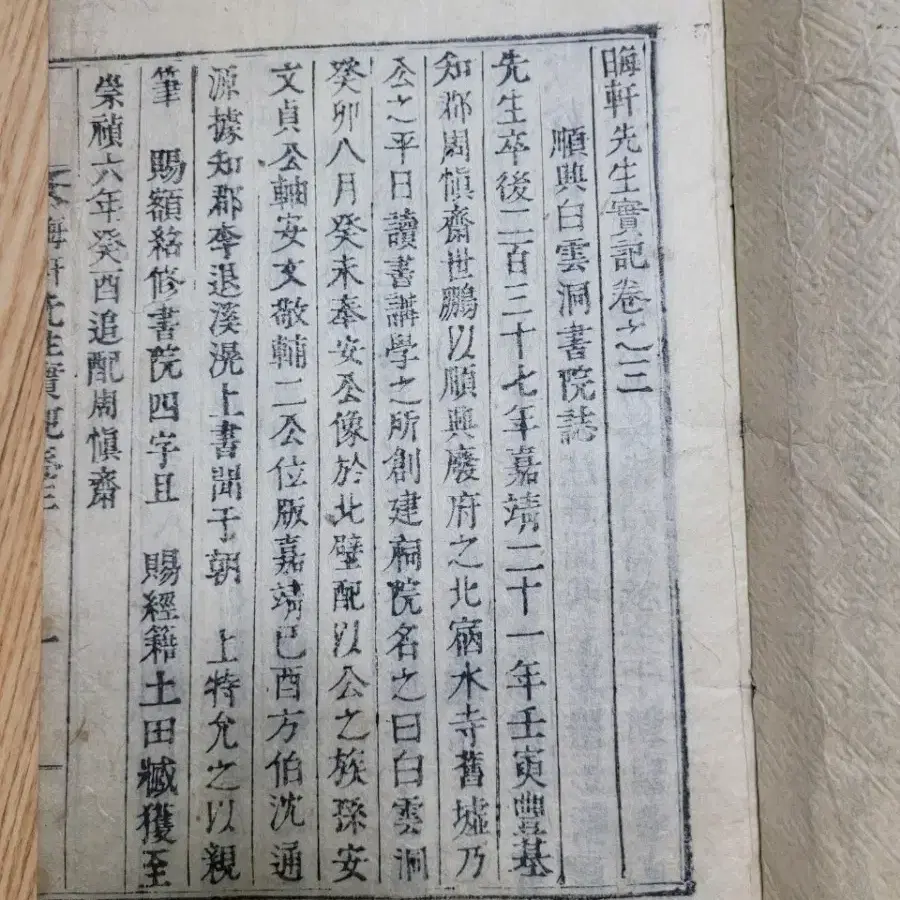 晦軒先生實記卷之三
順興白雲洞書院誌
先生卒後二百三十七年嘉靖二十一年壬寅豐基
知郡周愼齋世鵬以順興廢府之北宿水寺舊墟乃
公之平日讀書講學之所創建祠院名之曰白雲洞
癸卯八月癸未奉安公像於北壁配以公之族孫安
文貞公軸安文敬輔二公位版嘉靖已酉方伯沈通
源據知郡李退溪滉上書聞于朝 上特允之以親
筆 賜額紹修書院四字且 賜經籍土田臧獲至
崇禎六年癸酉追配周愼齋
晦軒先生實記卷三 一